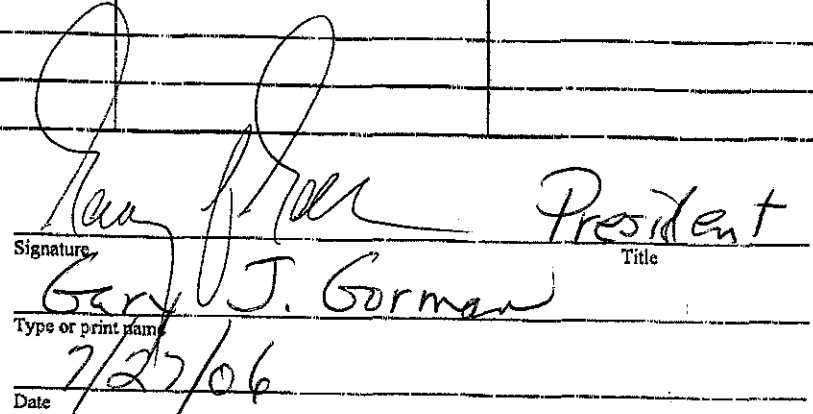 President
Signature Title
Gary J. Gorman
Type or print name
7/27/06
Date